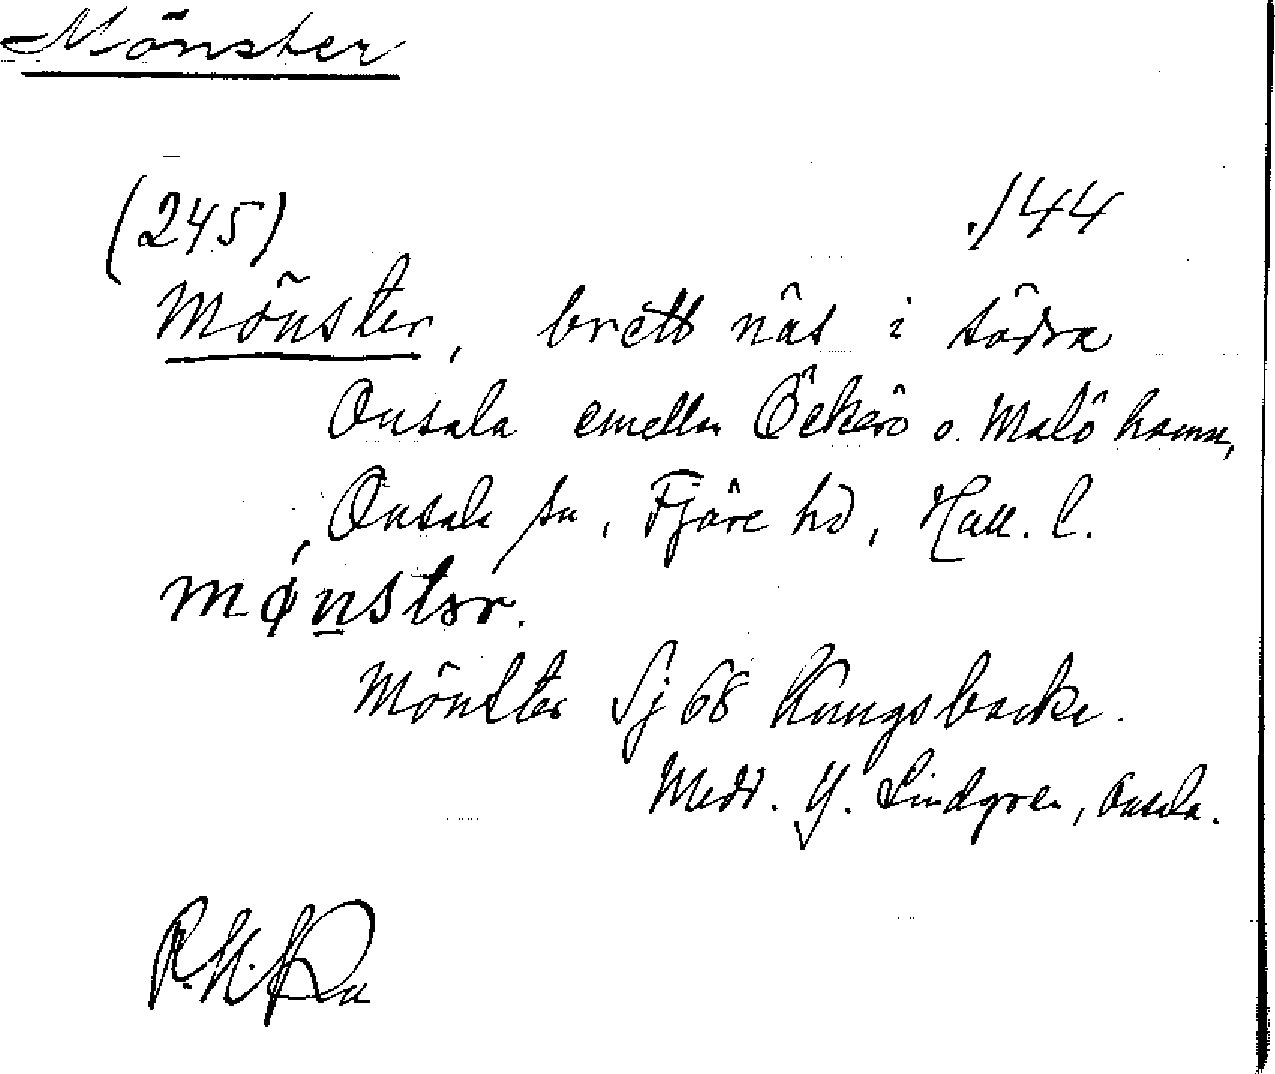 Mönster
(245) ./144
Mönster, brett näs i södra
Onsala emellan Öckerö o. Malö hamn,
Onsala sn, Fjäre hd, Hall. l.
mønstər.
Mönster Sj 68 Kungsbacka.
Medd. Y. Lindgren, Onsala.